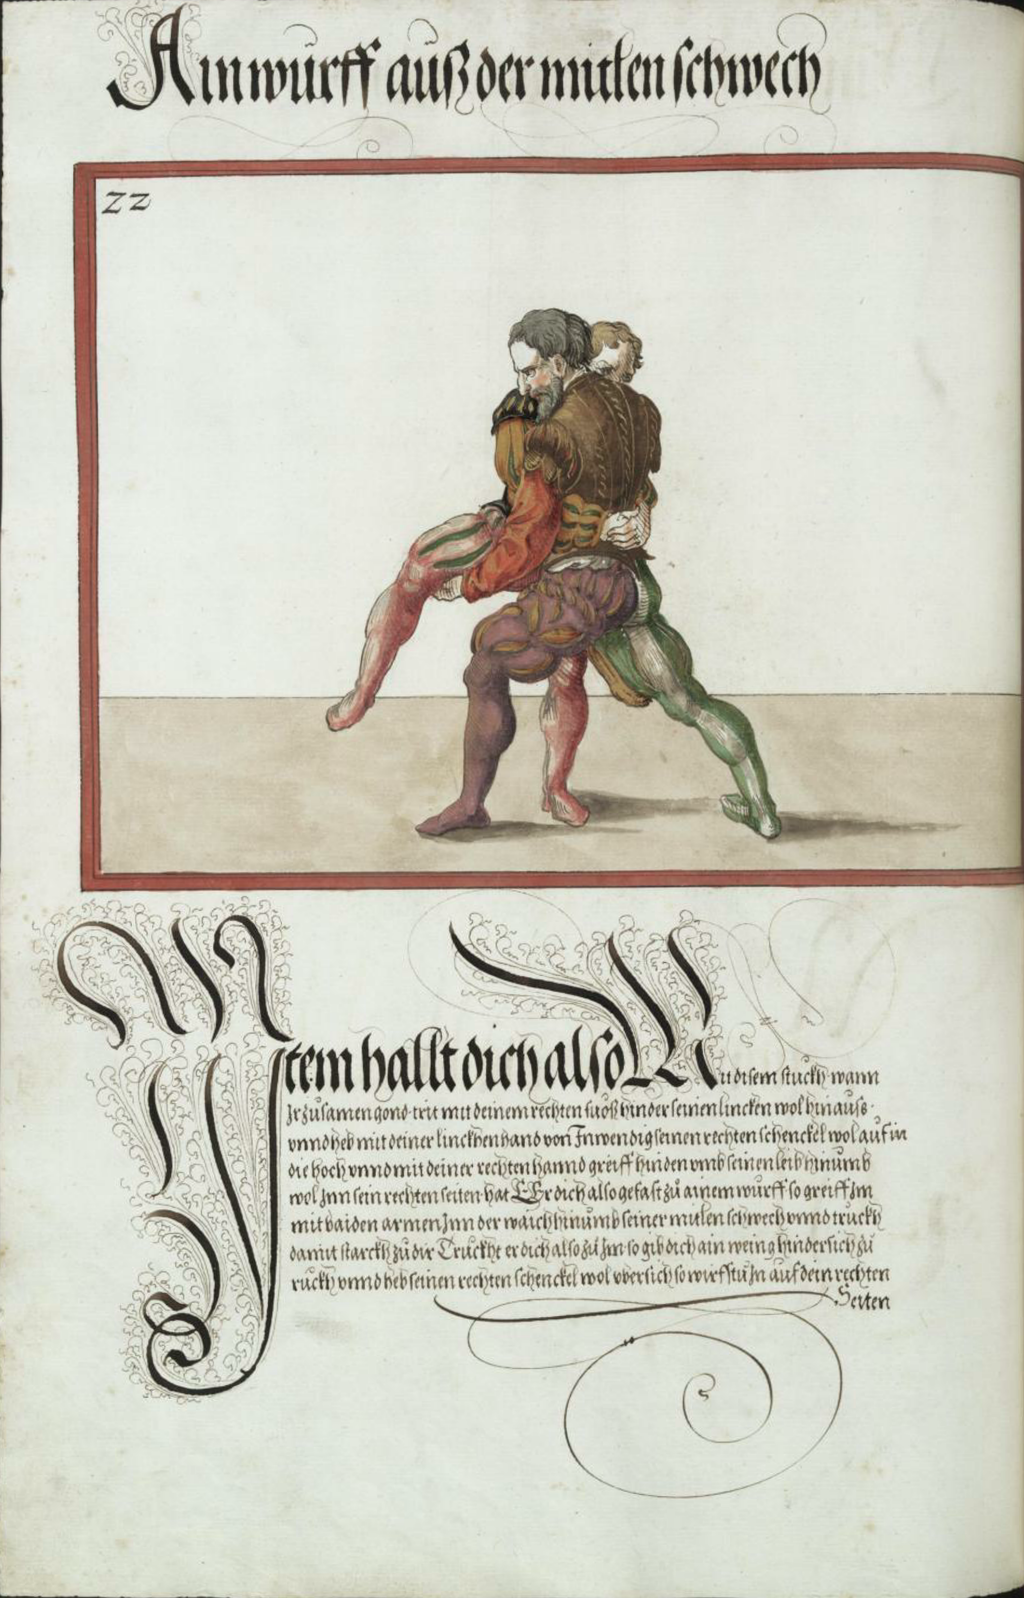 Ain wurff auß der mitlen schwech
22
Item hallt dich also Mit disem stuckh wann
Jr zusamen gond. trit mit deinem rechten fuoß hinder seinen lincken wol hinauss.
vnnd heb mit deiner linckhen hand von Inwendig seinen rechten schenckel wol auf in
die hoch vnnd mit deiner rechten hannd greiff hinden vmb seinen leib hinumb
wol Inn sein rechten seiten. hat Er dich also gefast zu ainem wurff so greiff Im
mit baiden armen Inn der waich hinumb seiner mitlen schwech vnnd truckh
damit starckh zu dir Truckht er dich also zu Im. so gib dich ain wenig hindersich zu
ruckh vnnd heb seinen rechten schenckel wol vbersich so wirfstu In auf dein rechten
Seiten